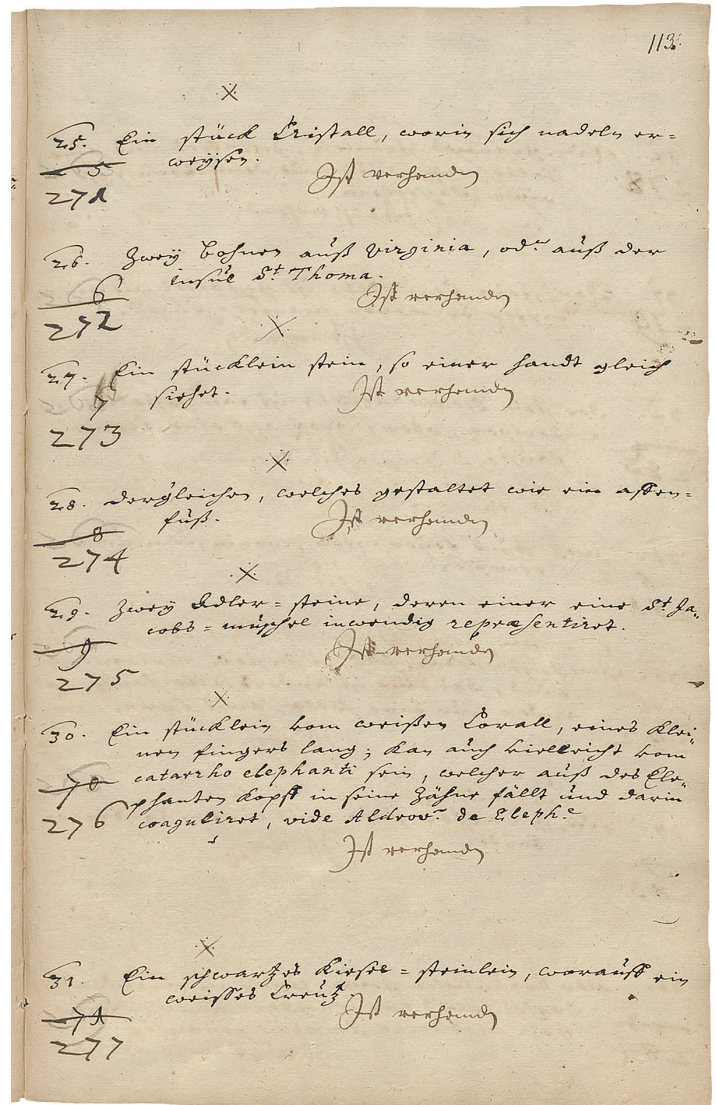 113.
25. Ein stück Cristall, worin sich nadeln er=
5 weysen.
Ist verhanden
271
26. Zwey Bohnen auß Virginia, od. auß der
insul St Thoma.
6 Ist verhanden
272
27. Ein stücklein stein, so einer handt gleich
7 siehet. Ist verhanden
273
28. dergleichen, welches gestaltet wie ein affen=
8 fuß. Ist verhanden
274
29. Zwey Adler=steine, deren einer eine St Ja=
9 cobs=muschel inwendig repræsentiret.
Ist verhanden
275
30. Ein stücklein vom weißen Corall, eines klei=
nen fingers lang; kan auch vielleicht vom
10 catarrho elephanti sein, welcher auß des Ele=
phanten kopff in seine Zähne fällt und darin
276 coaguliret, vide Aldrov. de Eleph.
Ist verhanden
31. Ein schwartzes Kiesel=steinlein, worauff ein
weisses Creutz
11 Ist verhanden
277